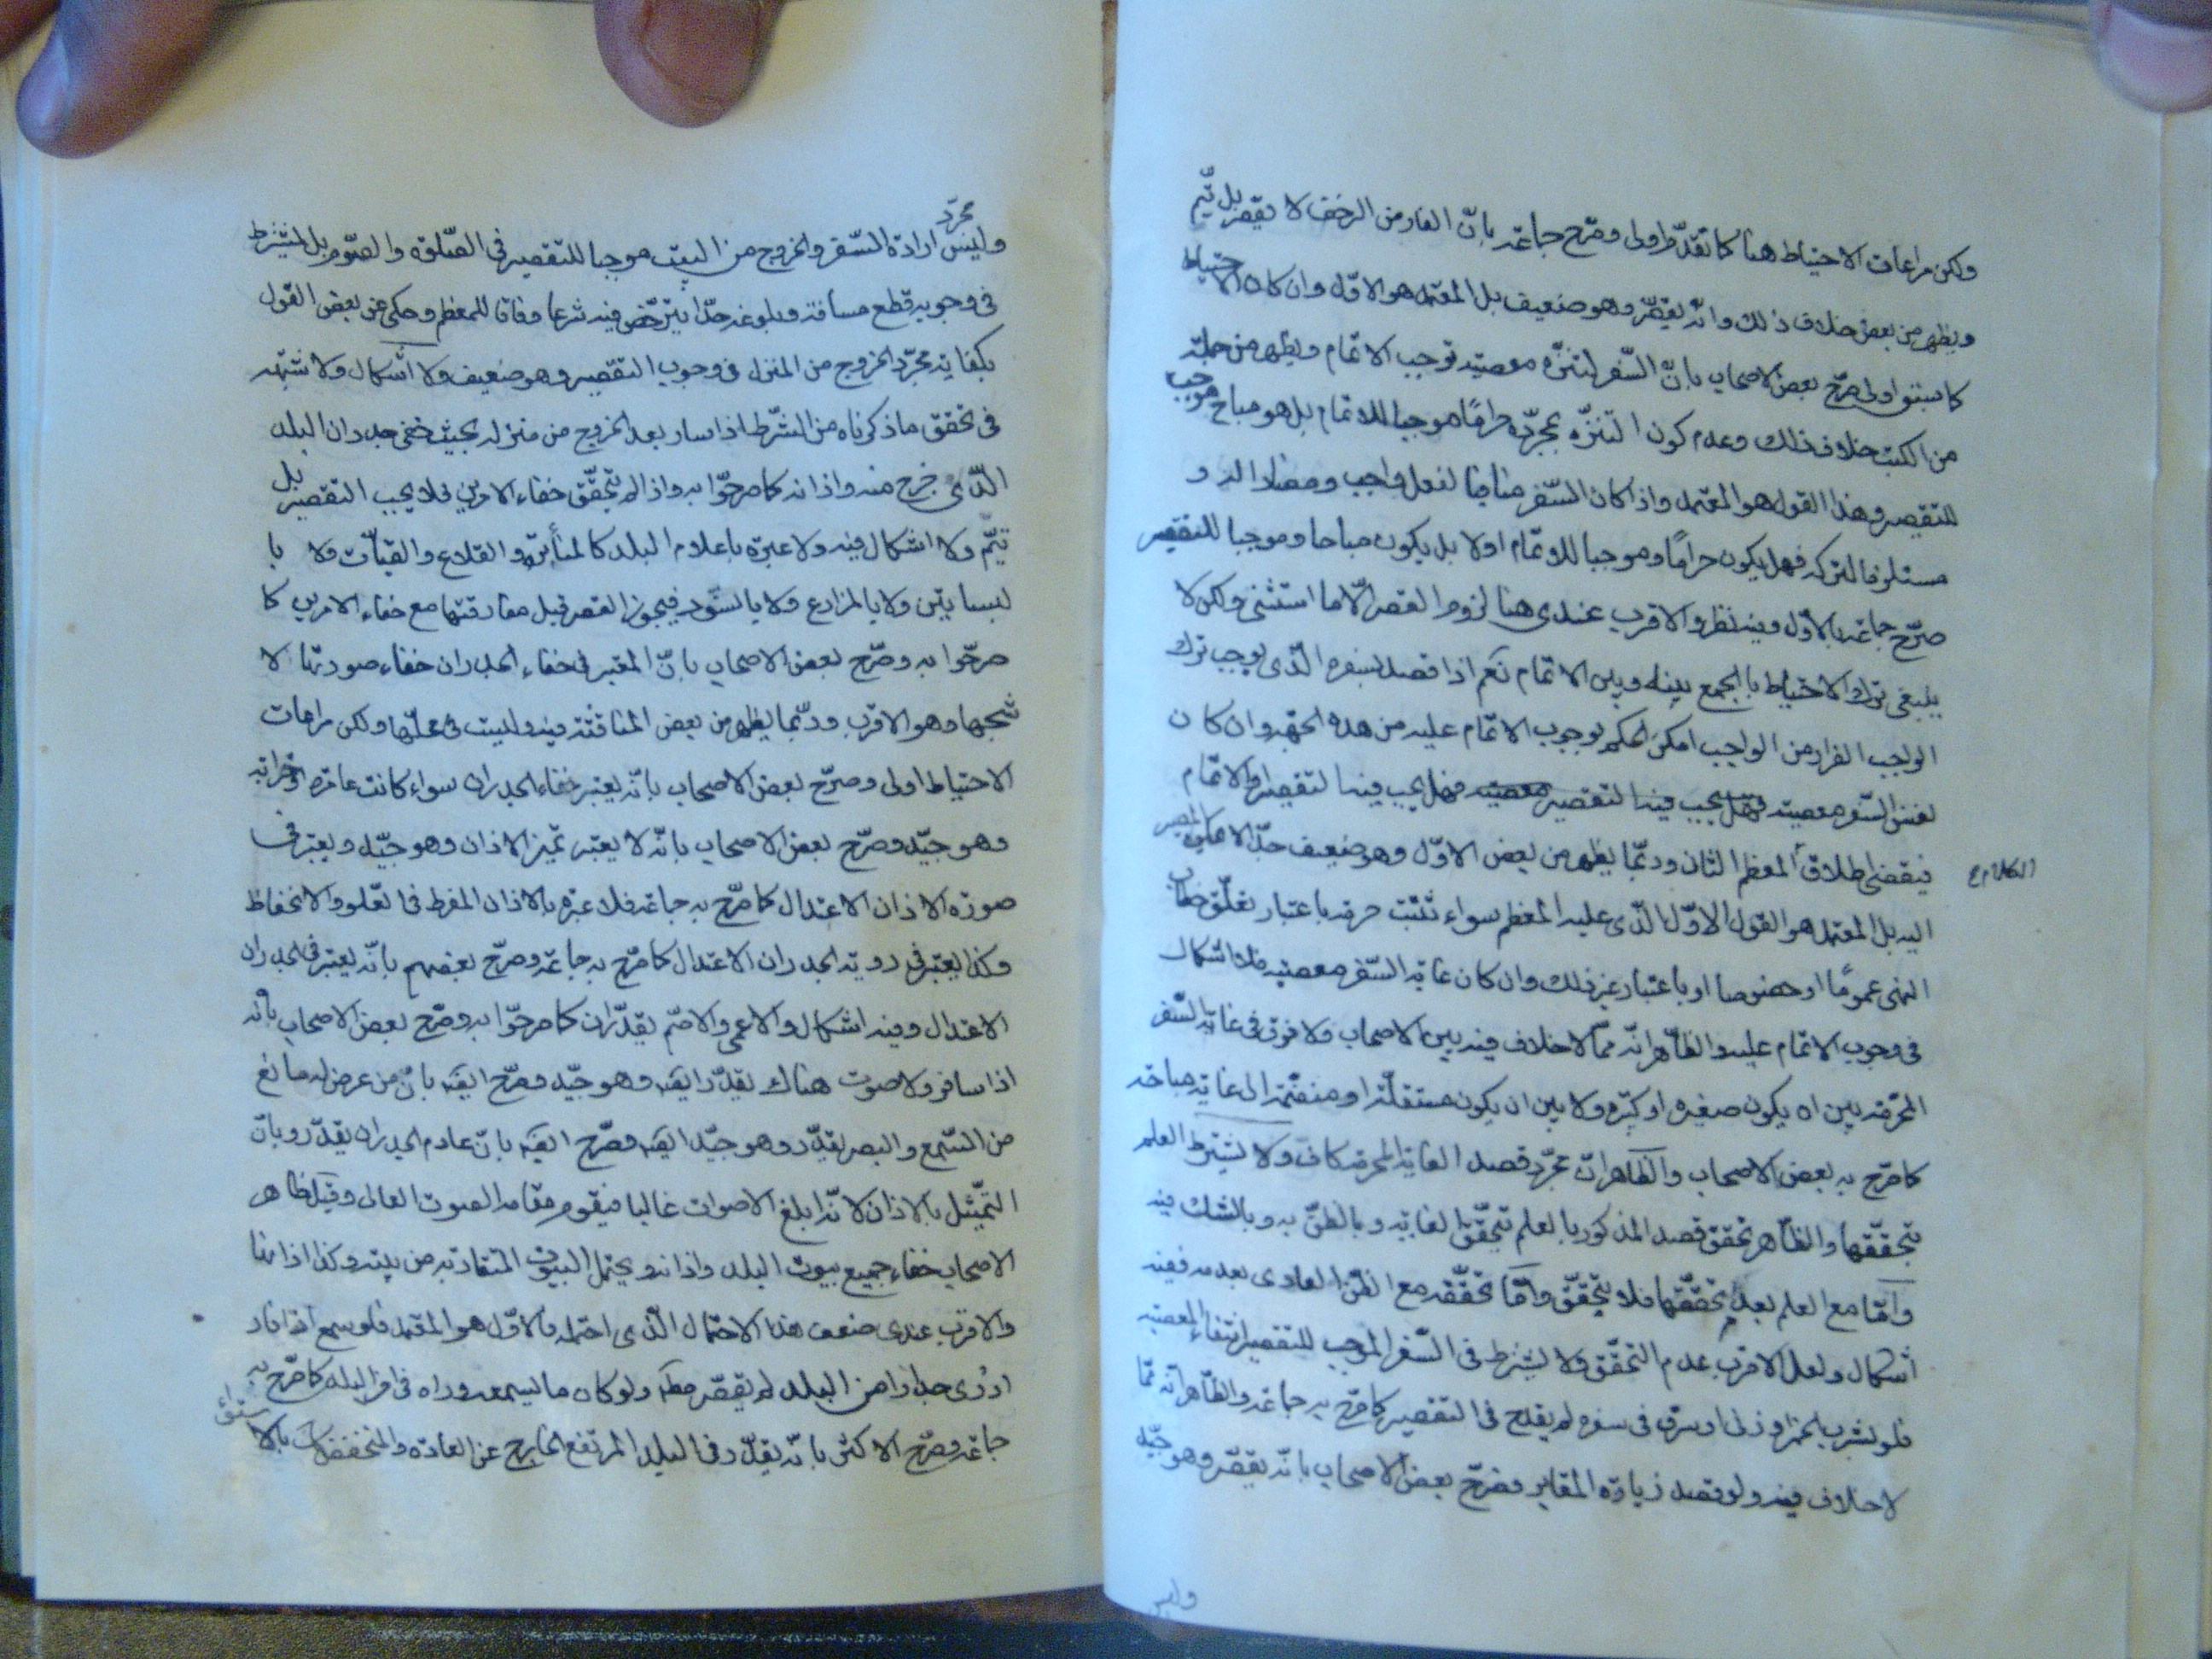 ولكن مراعات الاحتياط هنا كما تقدّم اولى وصرّح جماعة بانّ الفار من الزحف لا يقصّر بل يتمّ
ويظهر من بعض خلاف ذلك وانّه يقصّر وهو ضعيف بل المعتمد هو الاوّل وان كان الاحتياط
كما سبق اولى صرّح بعض الاصحاب بانّ السّفر لتنزّه معصية توجب الاتمام ويظهر من جملة
من الكتب خلاف ذلك وعدم كون التنزّه بمجرّده حرامًا موجبا للاتمام بل هو مباح موجب
للتقصير وهذا القول هو المعتمد واذا كان السّفر منافيا لفعل واجب ومضادا له و
مستلزما لتركه فهل يكون حرامًا وموجبا للاتمام اولا بل يكون مباحا وموجبا للتقصير
صرّح جماعة بالاوّل وفيه نظر والاقرب عندى هنا لزوم القصر الّا ما استثنى ولكن لا
ينبغى ترك الاحتياط بالجمع بينه وبين الاتمام نعم اذا قصد بسفره الّذى يوجب ترك
الواجب الفرار من الواجب امكن الحكم بوجوب الاتمام عليه من هذه الجهة وان كان
نفس السّفر معصية فهل يجب فيه التقصير معصية فهل يجب فيه التقصير او الاتمام
فيقضى اطلاق المعظم الثان وربّما يظهر من بعض الاوّل وهو ضعيف جدّا لا يمكن المصير
اليه بل المعتمد هو القول الاوّل الّذى عليه المعظم سواء ثبتت حرمته باعتبار تعلّق خطاب
النهى عمومًا او خصوصا او باعتبار غير ذلك وان كان غاية السّفر معصية فلا اشكال
فى وجوب الاتمام عليه والظّاهر انّه ممّا لا خلاف فيه بين الاصحاب ولا فرق فى غاية السّفر
المحرّمة بين ان يكون صغيره او كبيره ولا بين ان يكون مستقلّة او منضمّة الى غاية مباحة
كما صرّح به بعض الاصحاب والظاهر انّ مجرّد قصد الغاية المحرمة كاف ولا يشترط العلم
بتحقّقها والظّاهر تحقق قصد المذكور بالعلم بتحقّق الغاية وبالظنّ به وبالشك فيه
وامّا مع العلم بعدم تحقّقها فلا يتحقّق وامّا تحقّقه مع الظنّ العادى بعدمه ففيه
اشكال ولعل الاقرب عدم التحقّق ولا يشترط فى السّفر الموجب للتقصير انتفاء المعصية
فلو شرب الخمر او زنى او سرق فى سفره لم يقدح فى التقصير كما صرّح به جماعة والظّاهر انّه ممّا
لا خلاف فيه ولو قصد زيارة المقابر فصرّح بعض الاصحاب بانّه يقصّر وهو جيّد
وليس
وليس مجرّد ارادة السّفر والخروج من البيت موجبا للتقصير فى الصّلوة والصّوم بل يشترط
فى وجوبه قطع مسافة وبلوغه حدّا يترخّص فيه شرعا وفاقا للمعظم وحكى عن بعض القول
بكفاية مجرّد الخروج من المنزل فى وجوب التقصير وهو ضعيف ولا اشكال ولا شبهة
فى تحقق ما ذكرناه من الشّرط اذا سار بعد الخروج من منزله بحيث خفى جدران البلد
الّذى خرج منه واذانه كما صرحّوا به واذا لم يتحقّق خفاء الامرين فلا يجب التقصير بل
يتمّ ولا اشكال فيه ولا عبرة باعلام البلد كالمنأير والقلاع والقبّات ولا با
لبساتين ولا بالمزارع ولا بالسّور فيجوز القصر قبل مفارقتها مع خفاء الامرين كما
صرحّوا به وصرّح بعض الاصحاب بانّ المعتبر فى خفاء الجدران خفاء صورتها لا
شبحها وهو الاقرب وربّما يظهر من بعض المناقشة فيه وليست فى محلّها ولكن مراعات
الاحتياط اولى وصرّح بعض الاصحاب بانّه يعتبر خفاء الجدران سواء كانت عامرة او خرابة
وهو جيّد وصرّح بعض الاصحاب بانّه لا يعتبر تميز الاذان وهو جيّد ويعتبر فى
صورة الاذان الاعتدال كما صرّح به جماعة فلا عبرة بالاذان المفرط فى العلو والانخفاظ
وكذا يعتبر فى روية الجدران الاعتدال كما صرّح به جماعة وصرّح بعضهم بانّه يعتبر فى الجدران
الاعتدال وفيه اشكال والاعمى والاصّم يقدّران كما صرحّوا به وصرّح بعض الاصحاب بانّه
اذا سافر ولا صوت هناك يقدّر ايضه وهو جيّد وصرّح ايضه بانّ من عرض له مانع
من السّمع والبصر يقدّر وهو جيّد ايضه وصرّح ايضه بانّ عادم الجدران يقدّر وبانّ
التمّثيل بالاذان لانّه ابلغ الاصوات غالبا فيقوم مقامه الصوت العالى وقيل ظاهر
الاصحاب خفاء جميع بيوت البلد واذانه ويحتمل البيوت المتقاربة من بيته وكذا اذانها
والاقرب عندى ضعف هذا الاحتمال الّذى احتمله فالاوّل هو المعتمد فلو سمع اذانا
او رٰى جدارا من البلد لم يقصّر مطه ولو كان ما يسمعه وراه فى اخر البلد كما صرّح به
جماعة وصرّح الاكثر بانّه يقدّر فى البلد المرتفع الخارج عن العادة والمنخفض كك بالاستواء